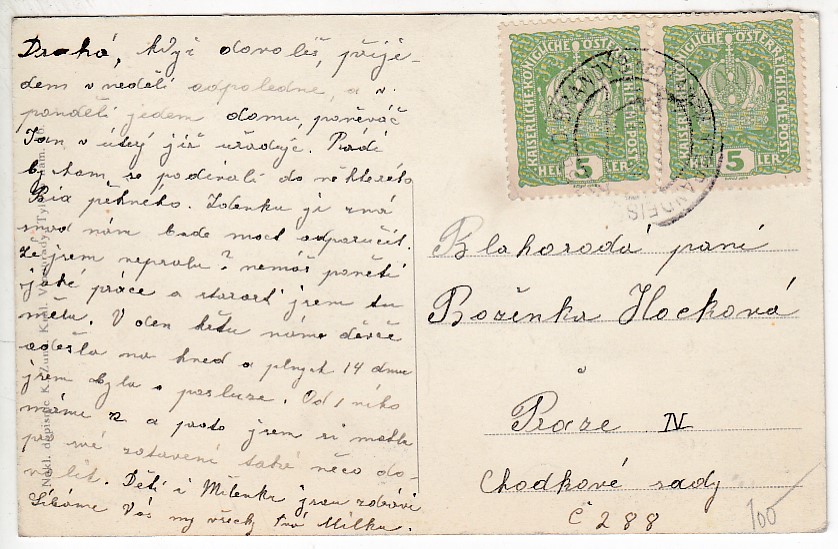 Drahá, když dovolíš, přije-
dem v neděli odpoledne, a v
pondělí jedem domu, poněvač
Jan v úterý již uřaduje. Rádi
bychom se podívali do některého
Bia pěkného. Zdenku ji zná
snad nám bude moct odporučit.
že jsem nepsala? nemáš ponětí
jaké práce a starosti jsem tu
měla. V den
odešla na hned a plných 14 dnu
jsem byla o posluze. Od 1 niho
máme a proto jsem si mohla
po své zotavení také něco do-
volit. Děti i Milenka jsou zdrávi
Líbáme Vás my všecky tvá Milka.
KAISERLICHE KÖNIGLICHE ÖSTERREICHISCHE POST
5 HELLER
KAISERLICHE KÖNIGLICHE ÖSTERREICHISCHE POST
5 HELLER
BRANDÝS NAD LABEM
BRANDEIS
Blahorodá paní
Boženka Hocková
v
Praze IV
Chodkové sady
č 288
100